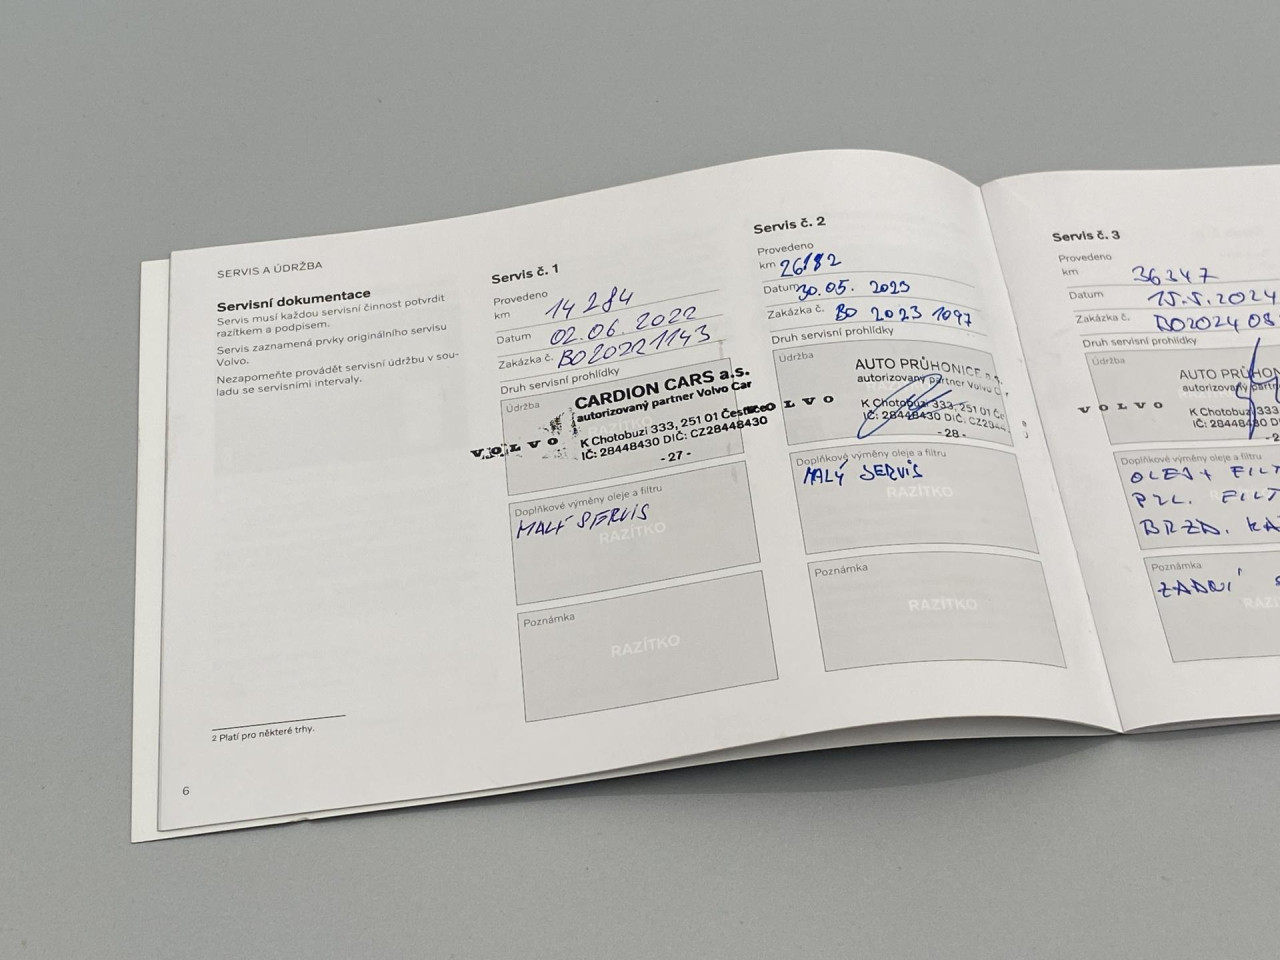 SERVIS A ÚDRŽBA
Servisní dokumentace
Servis musí každou servisní činnost potvrdit
razítkem a podpisem.
Servis zaznamená prvky originálního servisu
Volvo.
Nezapomeňte provádět servisní údržbu v sou-
ladu se servisními intervaly.
2 Platí pro některé trhy.
6
Servis č. 1
Provedeno
km 14 284
Datum 02.06.2022
Zakázka č. BO20221143
Druh servisní prohlídky
Údržba
CARDION CARS a.s.
autorizovaný partner Volvo Car
VOLVO
K Chotobuzi 333, 251 01 Čestlice
IČ: 28448430 DIČ: CZ28448430
- 27 -
Doplňkové výměny oleje a filtru
MALÝ SERVIS
RAZÍTKO
Poznámka
RAZÍTKO
Servis č. 2
Provedeno
km 26182
Datum 30.05. 2023
Zakázka č. BO 2023 1097
Druh servisní prohlídky
Údržba
AUTO PRŮHONICE
autorizovaný partner Volvo
VOLVO
K Chotobuzi 333, 251 01
IČ: 28448430 DIČ: CZ2844
- 28 -
Doplňkové výměny oleje a filtru
MALÝ SERVIS
RAZÍTKO
Poznámka
RAZÍTKO
Servis č. 3
Provedeno
km 36247
Datum 15.5.2024
Zakázka č. BO2024 08
Druh servisní prohlídky
Údržba
AUTO PRŮHON
autorizovaný
VOLVO
K Chotobuzi 333
IČ: 28448430 D
Doplňkové výměny oleje a filtru
OLEJ + FILT
PYL. FILT
BRZD. KA
Poznámka
ZADNÍ
RAZÍ